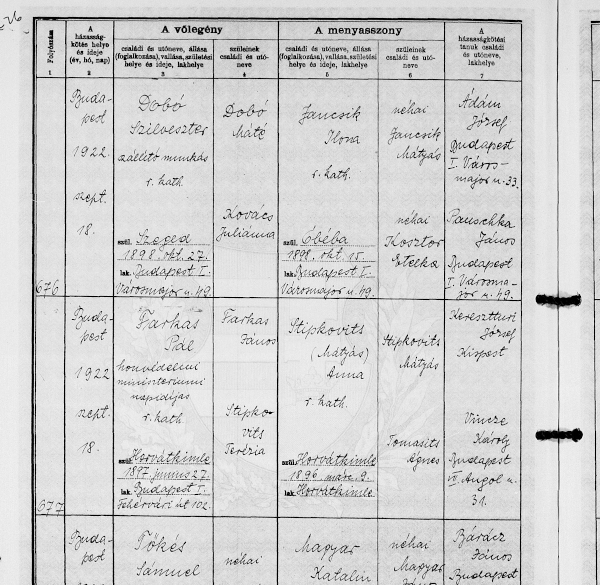 Folyószám
A
házasság-
kötés helye
és ideje
(év, hó, nap)
A vőlegény
A menyasszony
A
házasságkötési
tanuk családi
és utóneve,
lakhelye
családi és utóneve, állása
(foglalkozása), vallása, születési
helye és ideje, lakhelye
szüleinek
családi és utó-
neve
családi és utóneve, állása
(foglalkozása), vallása, születési
helye és ideje, lakhelye
szüleinek
családi és utó-
neve
1
2
3
4
5
6
7
676
Buda-
pest
1922.
szept.
18.
Dobó
Szilveszter
szállító munkás
r. kath.
szül. Szeged
1898. okt. 27.
lak. Budapest I.
Városmajor u. 49.
Dobó
Máté
Kovács
Juliánna
Jancsik
Ilona
r. kath.
szül. Óbéba
1898. okt. 15.
lak. Budapest I.
Városmajor u. 49.
néhai
Jancsik
Mátyás
néhai
Kosztor
Etelka
Ádám
József
Budapest
I. Város-
major u. 33.
Pauschka
János
Budapest
I. Városma-
jor u. 49.
677
Buda-
pest
1922
szept.
18.
Farkas
Pál
honvédelmi
ministeriumi
napidíjas
r. kath.
szül. Horvátkimle
1897. junius 27.
lak. Budapest I.
Fehérvári út 102.
Farkas
János
Stipko-
vits
Terézia
Stipkovits
(Mátyás)
Anna
r. kath.
szül. Horvátkimle
1896. márc. 9.
lak. Horvátkimle
Stipkovits
Mátyás
Tomasits
Ágnes
Kereszturi
József
Kispest
Vincze
Károly
Budapest
VII. Angol u.
31.
Buda-
pest
Tőkés
Sámuel
néhai
Magyar
Katalin
néhai
Magyar
Bárácz
János
Budapest